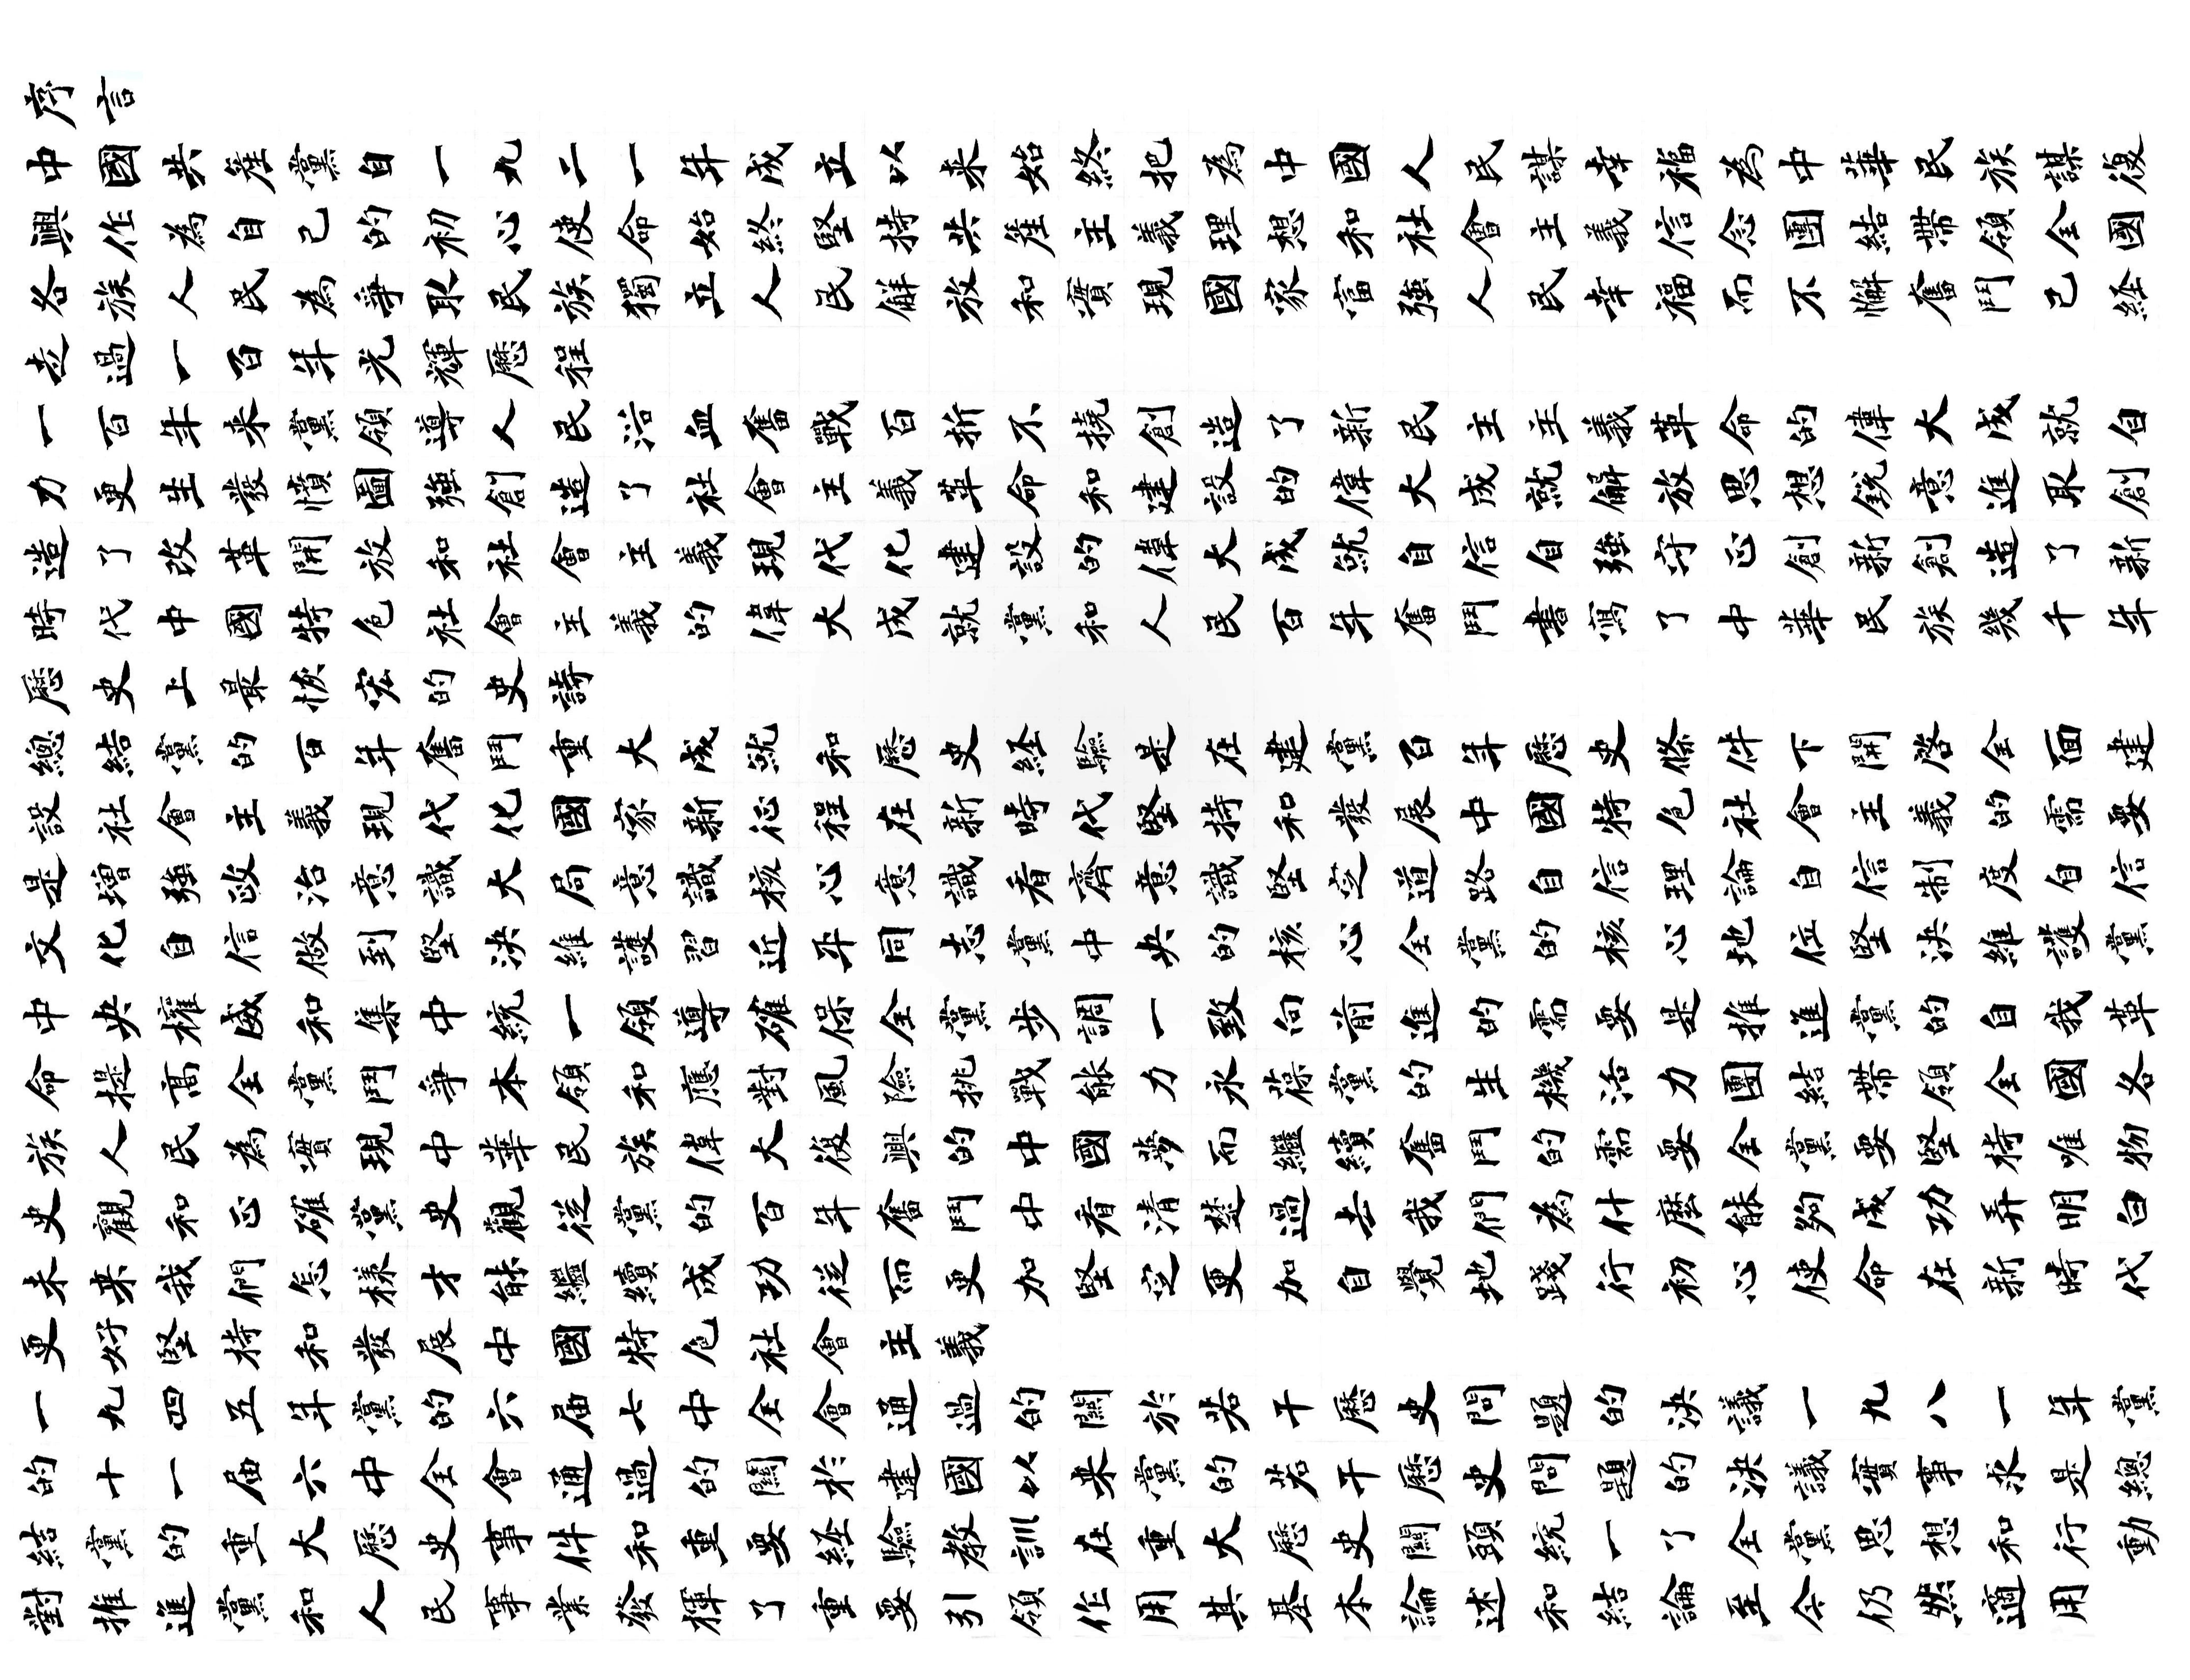 序言
中國共產黨自一九二一年成立以来始終把為中國人民謀幸福為中華民族謀復
興作為自己的初心使命始終堅持共產主義理想和社會主義信念團結帶領全國
各族人民為爭取民族獨立人民解放和實現國家富強人民幸福而不懈奮鬥已経
走過一百年光輝歷程
一百年来黨領導人民浴血奮戰百折不撓創造了新民主主義革命的偉大成就自
力更生發憤圖強創造了社會主義革命和建設的偉大成就解放思想銳意進取創
造了改革開放和社會主義現代化建設的偉大成就自信自強守正創新創造了新
時代中國特色社會主義的偉大成就黨和人民百年奮鬥書寫了中華民族幾千年
歷史上最恢宏的史詩
總結黨的百年奮鬥重大成就和歷史経驗是在建黨百年歷史條件下開啓全面建
設社會主義現代化國家新征程在新時代堅持和發展中國特色社會主義的需要
是增強政治意識大局意識核心意識看齊意識堅定道路自信理論自信制度自信
文化自信做到堅決維護習近平同志黨中央的核心全黨的核心地位堅決維護黨
中央權威和集中統一領導確保全黨步調一致向前進的需要是推進黨的自我革
命提高全黨鬥爭本領和應對風險挑戰能力永葆黨的生機活力團結帶領全國各
族人民為實現中華民族偉大復興的中國夢而繼續奮鬥的需要全黨要堅持唯物
史觀和正確黨史觀從黨的百年奮鬥中看清楚過去我們為什麼能夠成功弄明白
未来我們怎樣才能繼續成功從而更加堅定更加自覺地踐行初心使命在新時代
更好堅持和發展中國特色社會主義
一九四五年黨的六届七中全會通過的關於若干歷史問題的決議一九八一年黨
的十一届六中全會通過的關於建國以来黨的若干歷史問題的決議實事求是總
結黨的重大歷史事件和重要経驗教訓在重大歷史關頭統一了全黨思想和行動
對推進黨和人民事業發揮了重要引領作用其基本論述和結論至今仍然適用